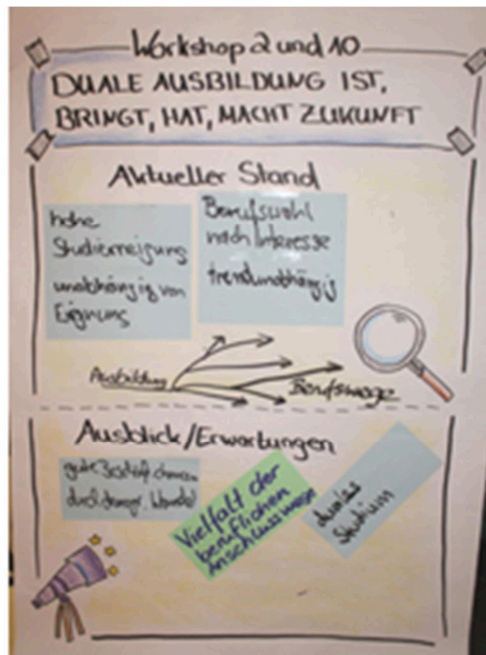 Workshop 2 und 10
DUALE AUSBILDUNG IST,
BRINGT, HAT, MACHT ZUKUNFT
Aktueller Stand
hohe
Studierneigung
unabhängig von
Eignung
Berufswahl
nach Interesse
trendunabhängig
Ausbildung
Berufswege
Ausblick/Erwartungen
gute
durch demogr. Wandel
Vielfalt der
beruflichen
Anschlusswege
duales
Studium